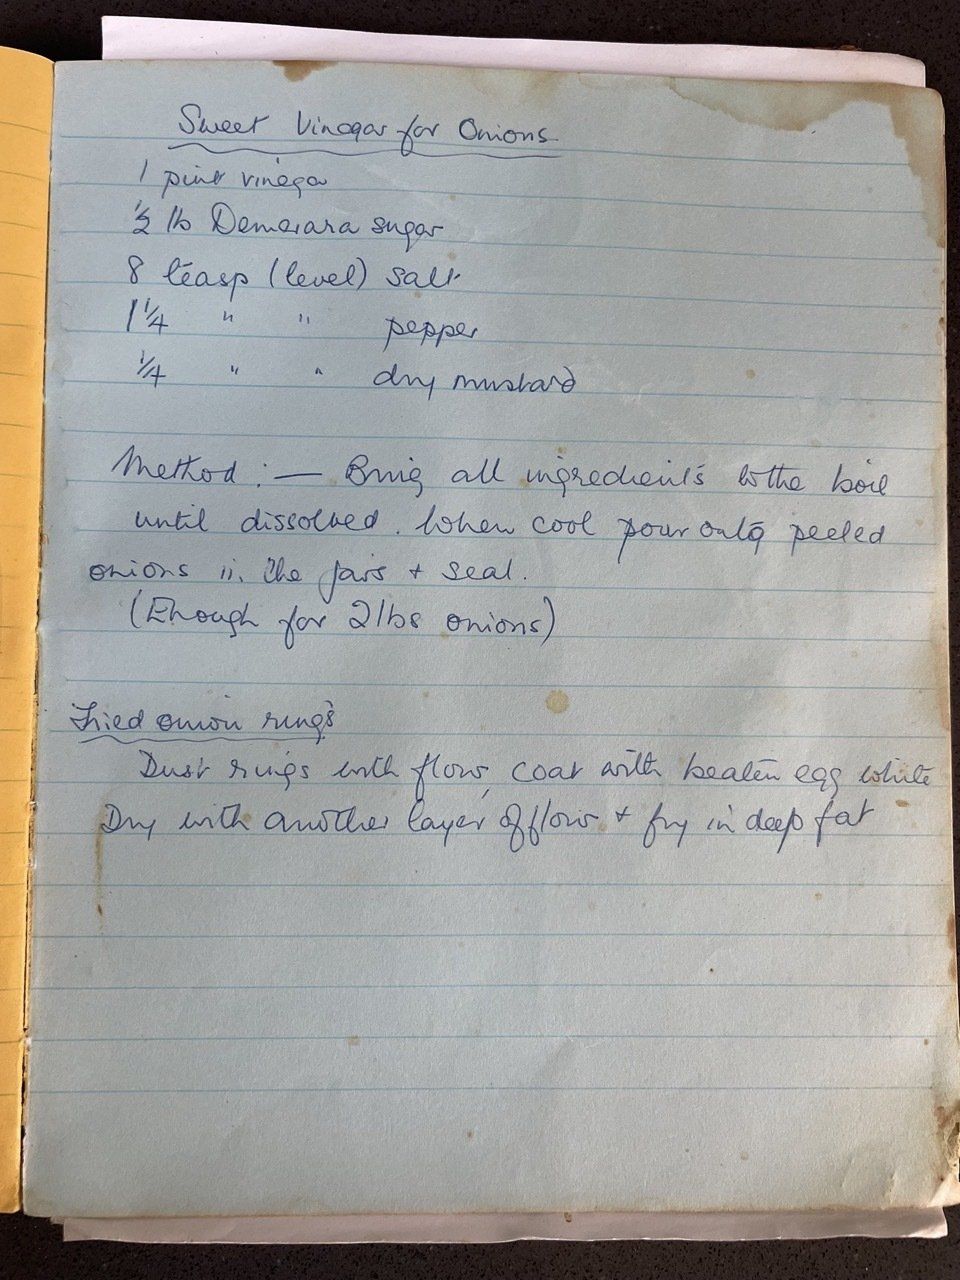 Sweet Vinegar for Onions
1 pint vinegar
½ lb Demerara sugar
8 teasp (level) salt
1¼ " " pepper
¼ " " dry mustard
Method :— Bring all ingredients to the boil
until dissolved. When cool pour onto peeled
onions in the jars + seal.
(Enough for 2 lbs onions)
Fried onion rings
Dust rings with flour, coat with beaten egg white
Dry with another layer of flour + fry in deep fat